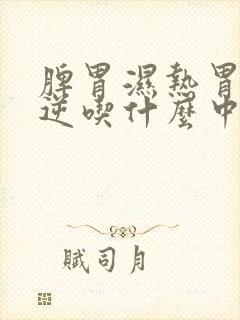 脾胃濕熱胃
逆喫什麼中
賦司月